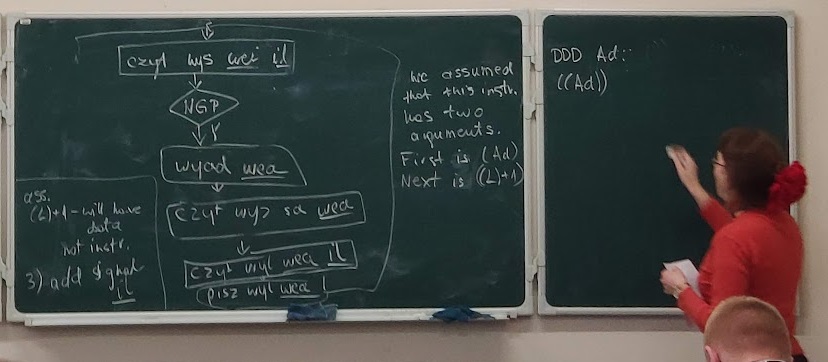 czyt wys wei il
NGP
wyad wea
czyt wys sa wea
czyt wyl wea il
pisz wyl wea
ass.
(L)+1 - will have
data
not instr.
3) add signal
il
We assumed
that this instr.
has two
arguments.
First is (Ad)
Next is ((L)+1)
DDD Ad::
((Ad))